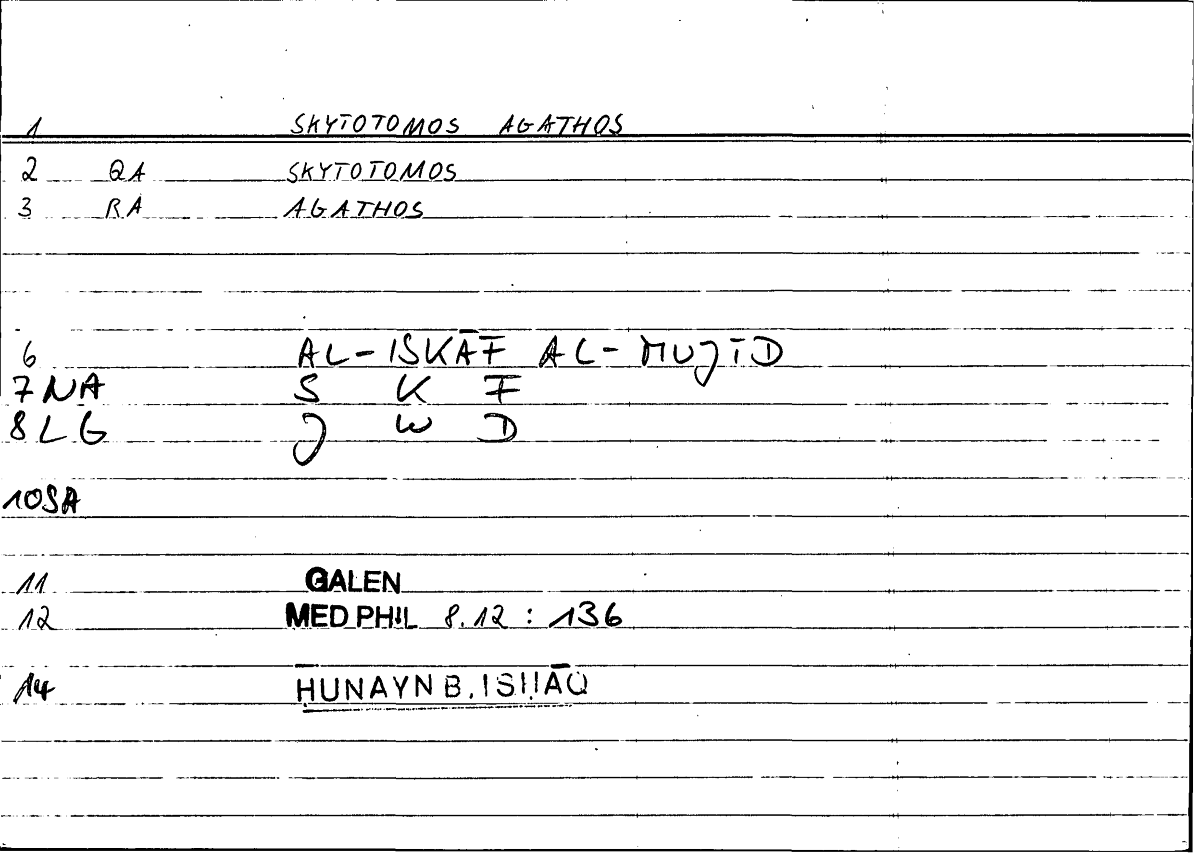 1 SKYTOTOMOS AGATHOS
2 QA SKYTOTOMOS
3 RA AGATHOS
6 AL-ISKĀF AL-MUJĪD
7 NA S K F
8 LG J W D
10 SA
11 GALEN
12 MED PHIL 8.12 : 136
14 ḤUNAYN B. ISḤĀQ